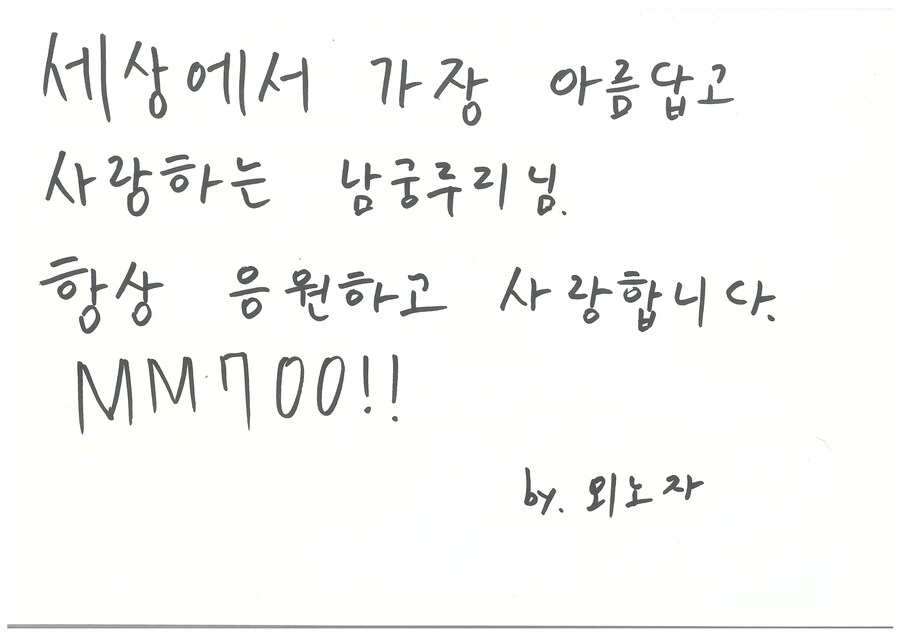 세상에서 가장 아름답고
사랑하는 남궁루리님.
항상 응원하고 사랑합니다.
MM700!!
by. 외노자